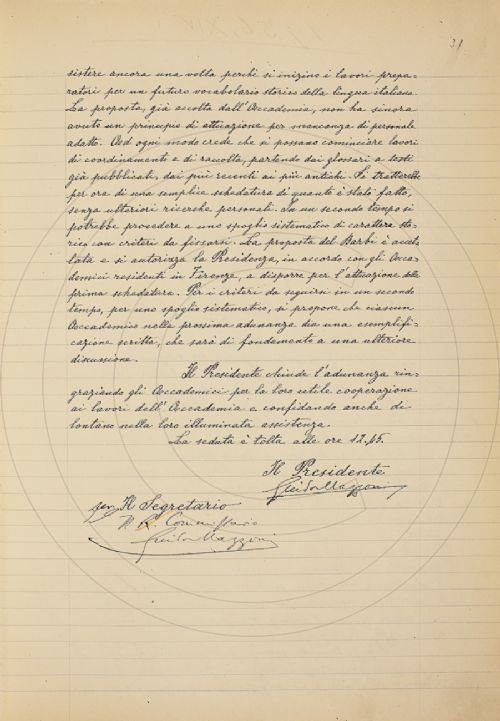 31
sistere ancora una volta perchè si inizino i lavori prepa-
ratori per un futuro vocabolario storico della lingua italiana.
La proposta, già accolta dall'Accademia, non ha sinora
avuto un principio di attuazione per mancanza di personale
adatto. Ad ogni modo crede che si possano cominciare lavori
di coordinamento e di raccolta, partendo dai glossari a testi
già pubblicati, dai più recenti ai più antichi. Si tratterebbe
per ora di una semplice schedatura di quanto è stato fatto,
senza ulteriori ricerche personali. In un secondo tempo si
potrebbe procedere a uno spoglio sistematico di carattere sto-
rico con criteri da fissarsi. La proposta del Barbi è accet-
tata e si autorizza la Presidenza, in accordo con gli Acca-
demici residenti in Firenze, a disporre per l'attuazione della
prima schedatura. Per i criteri da seguirsi in un secondo
tempo, per uno spoglio sistematico, si propone che ciascun
Accademico nella prossima adunanza dia una esemplifi-
cazione scritta, che sarà di fondamento a una ulteriore
discussione.
Il Presidente chiude l'adunanza rin-
graziando gli Accademici per la loro utile cooperazione
ai lavori dell'Accademia e confidando anche di
lontano nella loro illuminata assistenza.
La seduta è tolta alle ore 12.45.
Il Presidente
Guido Mazzoni
per Il Segretario
Il R. Commissario
Guido Mazzoni